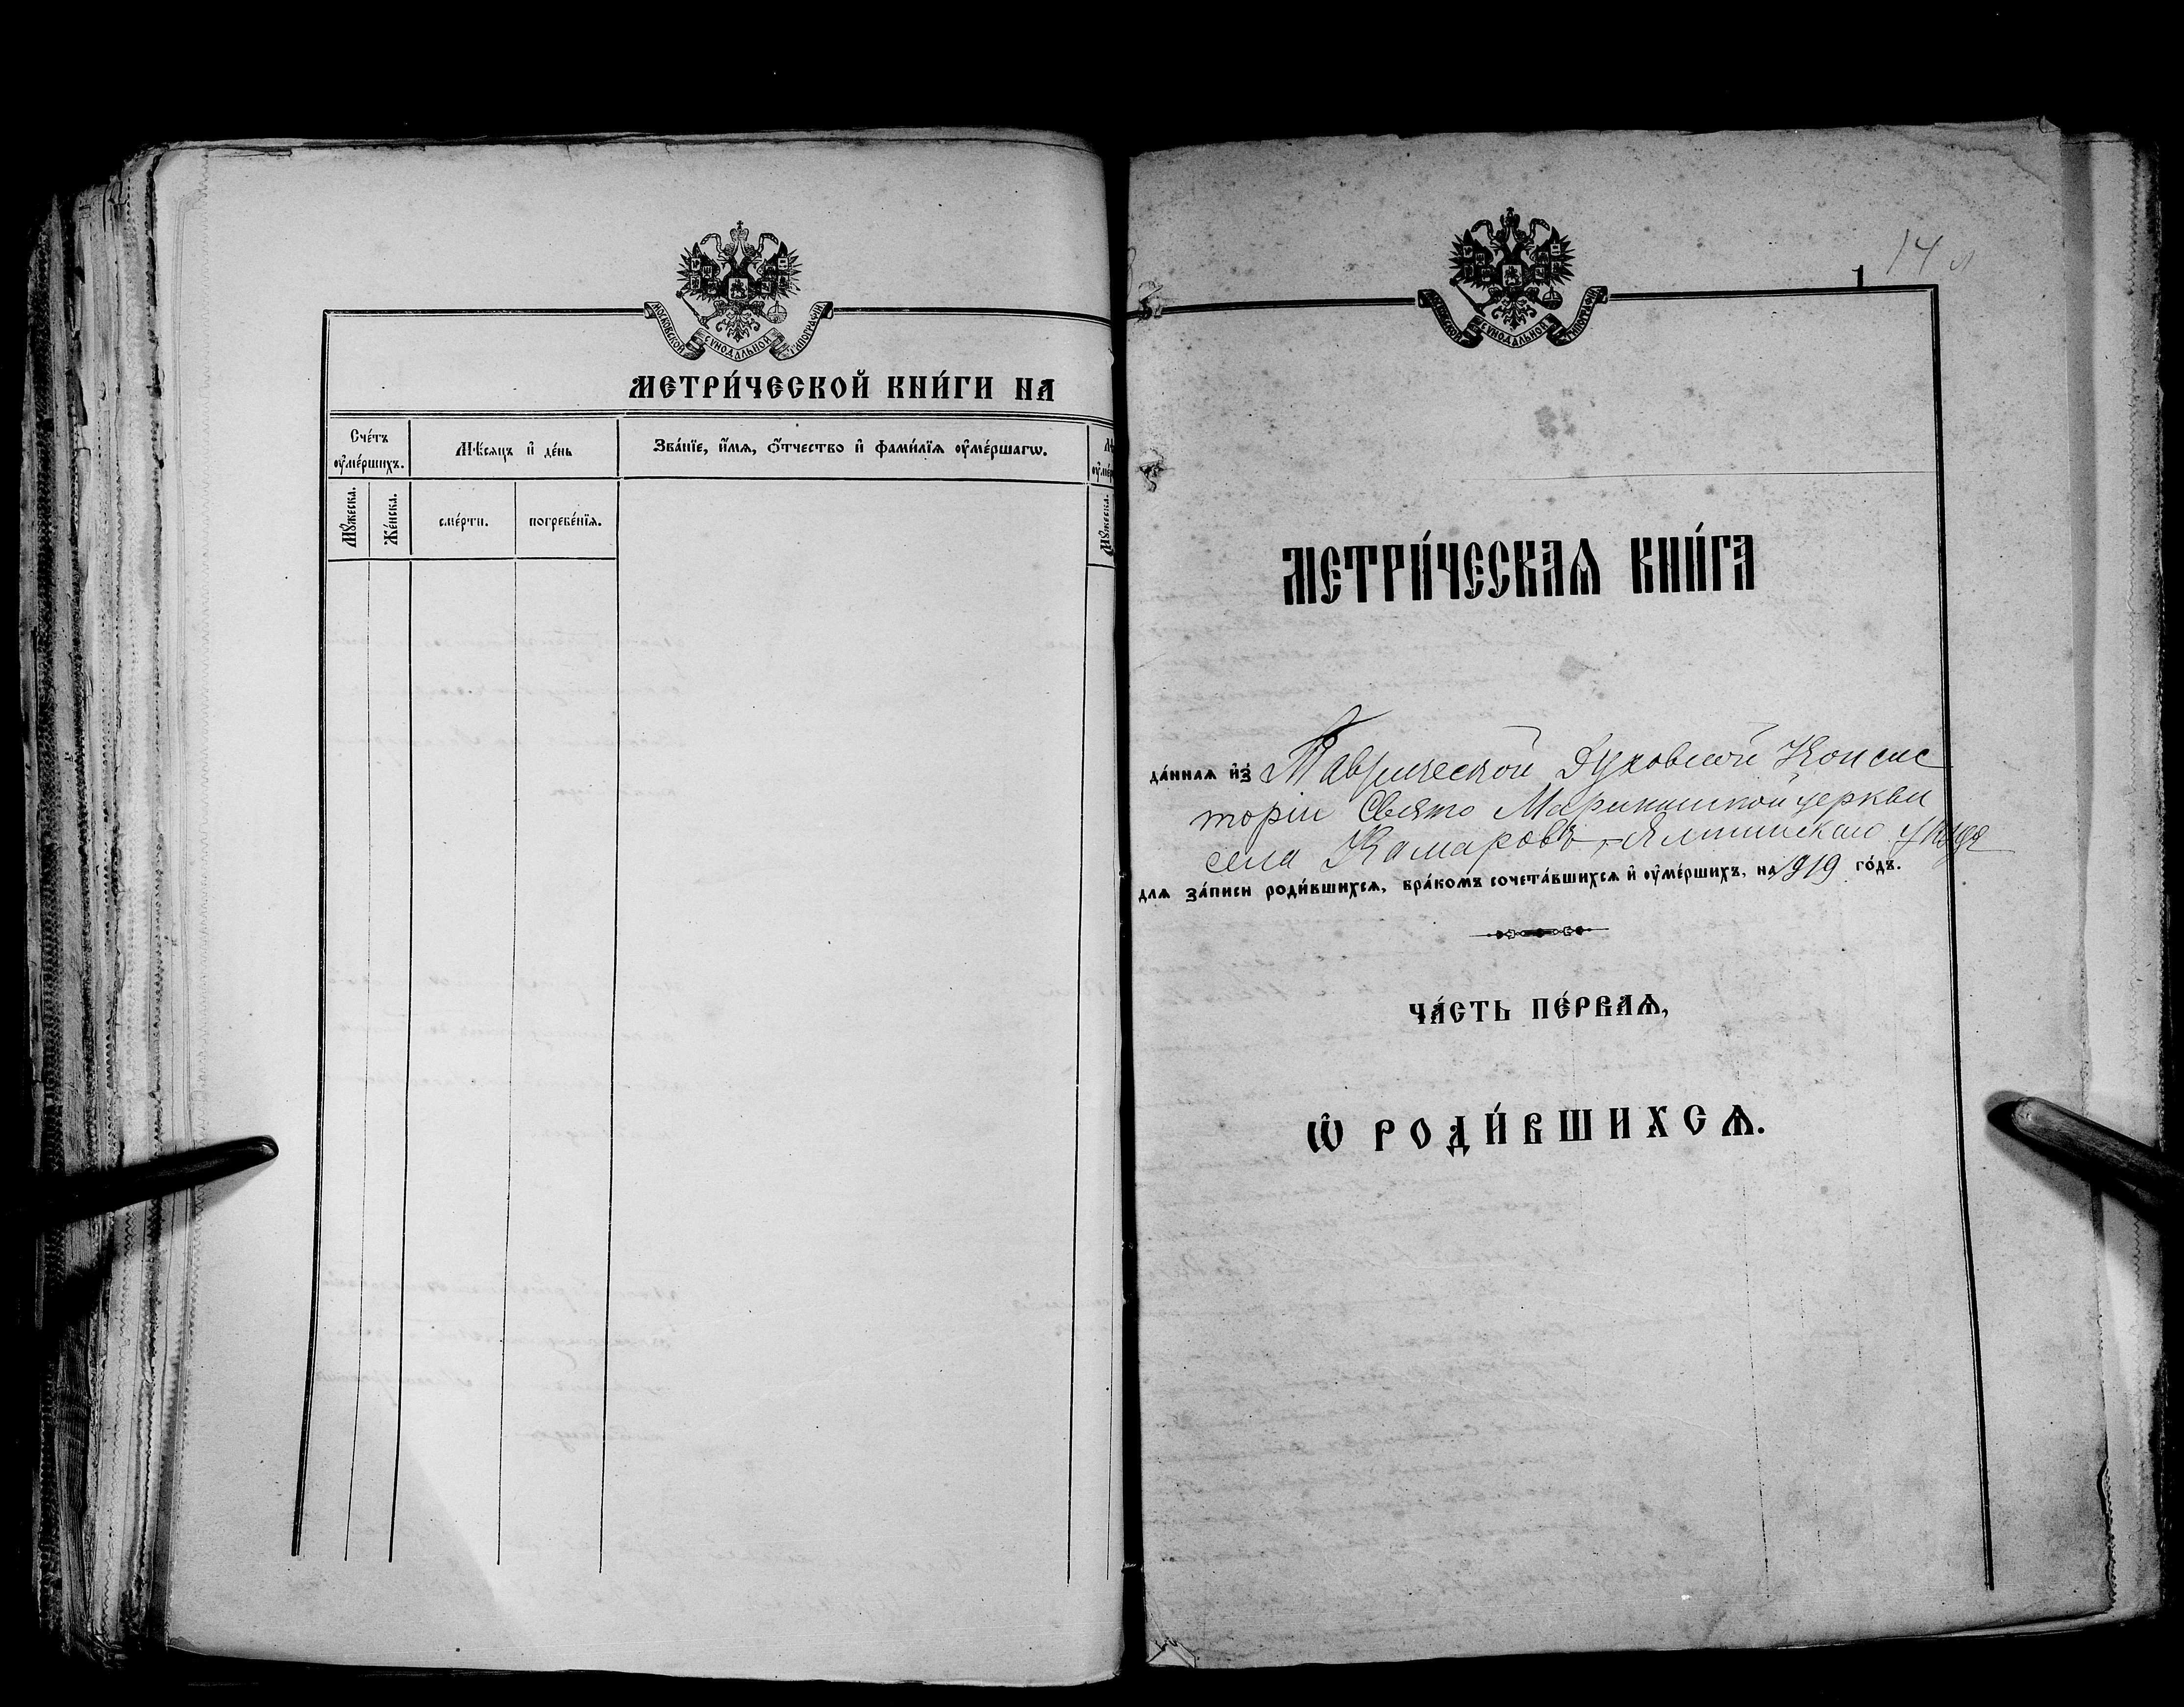 МОСКОВСКОЙ СѴНОДАЛЬНОЙ ТИПОГРАФІИ
МЕТРИ́ЧЕСКОЙ КНИ́ГИ НА
Сче́тъ
оу҆ме́ршихъ.
Мѣ́сяцъ и҆ де́нь
Зва́нїе, и҆́мѧ, ѻ҆́тчество и҆ фами́лїѧ оу҆ме́ршагѡ.
Мꙋ́жеска.
Же́нска.
сме́рти.
погребе́нїѧ.
Мꙋ́жеска.
14 л
1
МОСКОВСКОЙ СѴНОДАЛЬНОЙ ТИПОГРАФІИ
МЕТРИ́ЧЕСКАѦ КНИ́ГА
да́ннаѧ и҆з̾ Таврической Духовной Консис
торіи Свято Марининской церкви
села Камаровъ, Ялтинскаго уѣзда
длѧ за́писи роди́вшихсѧ, бра́комъ сочета́вшихсѧ и҆ оу҆ме́ршихъ, на 1919 го́дъ.
ЧА́СТЬ ПЕ́РВАѦ,
Ѡ҆ РОДИ́ВШИХСѦ.